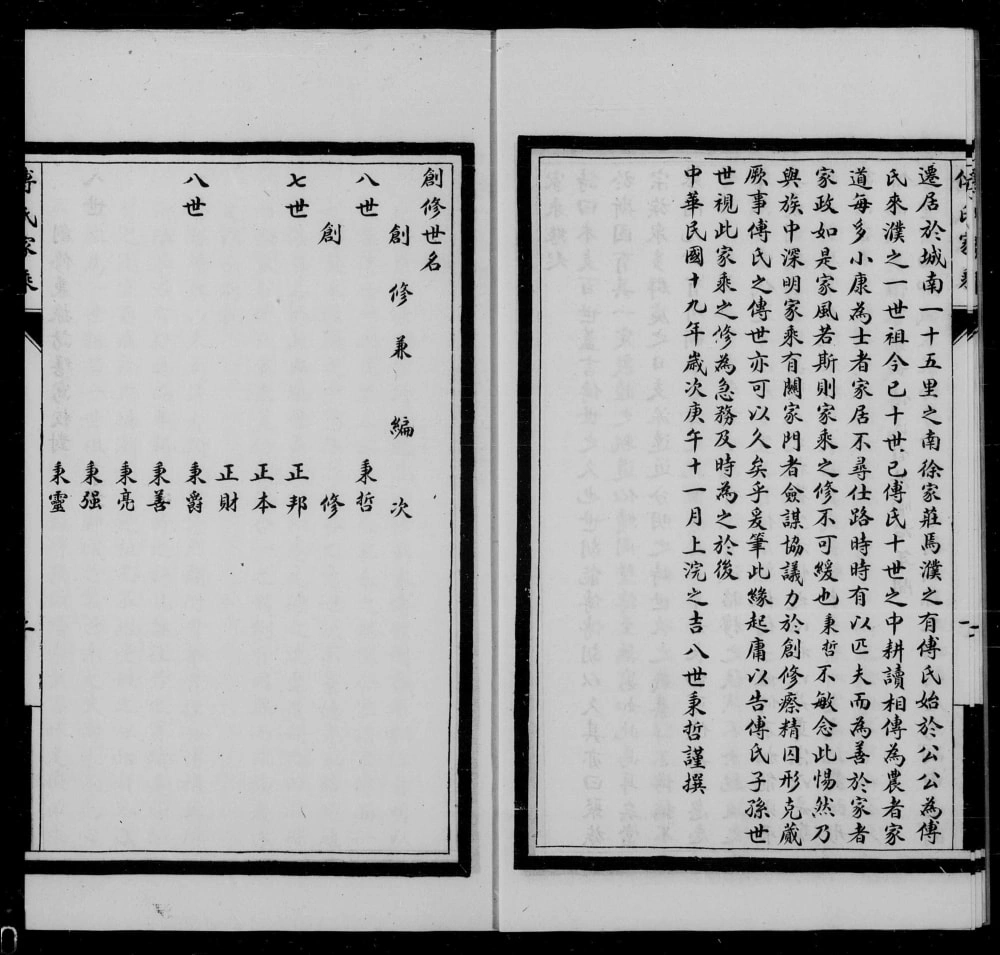 遷居於城南一十五里之南徐家莊馬濮之有傅氏始於公公為傅
氏來濮之一世祖今已十世已傅氏十世之中耕讀相傳為農者家
道每多小康為士者家居不尋仕路時時有以匹夫而為善於家者
家政如是家風若斯則家乘之修不可緩也秉哲不敏念此惕然乃
與族中深明家乘有關家門者僉謀協議力於創修瘵精囚形克蕆
厥事傅氏之傳世亦可以久矣乎爰筆此緣起庸以告傅氏子孫世
世視此家乘之修為急務及時為之於後
中華民國十九年歲次庚午十一月上浣之吉八世秉哲謹撰
創修世名
創修兼編次
八世 秉哲
創修
七世 正邦
正本
正財
八世 秉爵
秉善
秉亮
秉强
秉靈
傅氏家乘